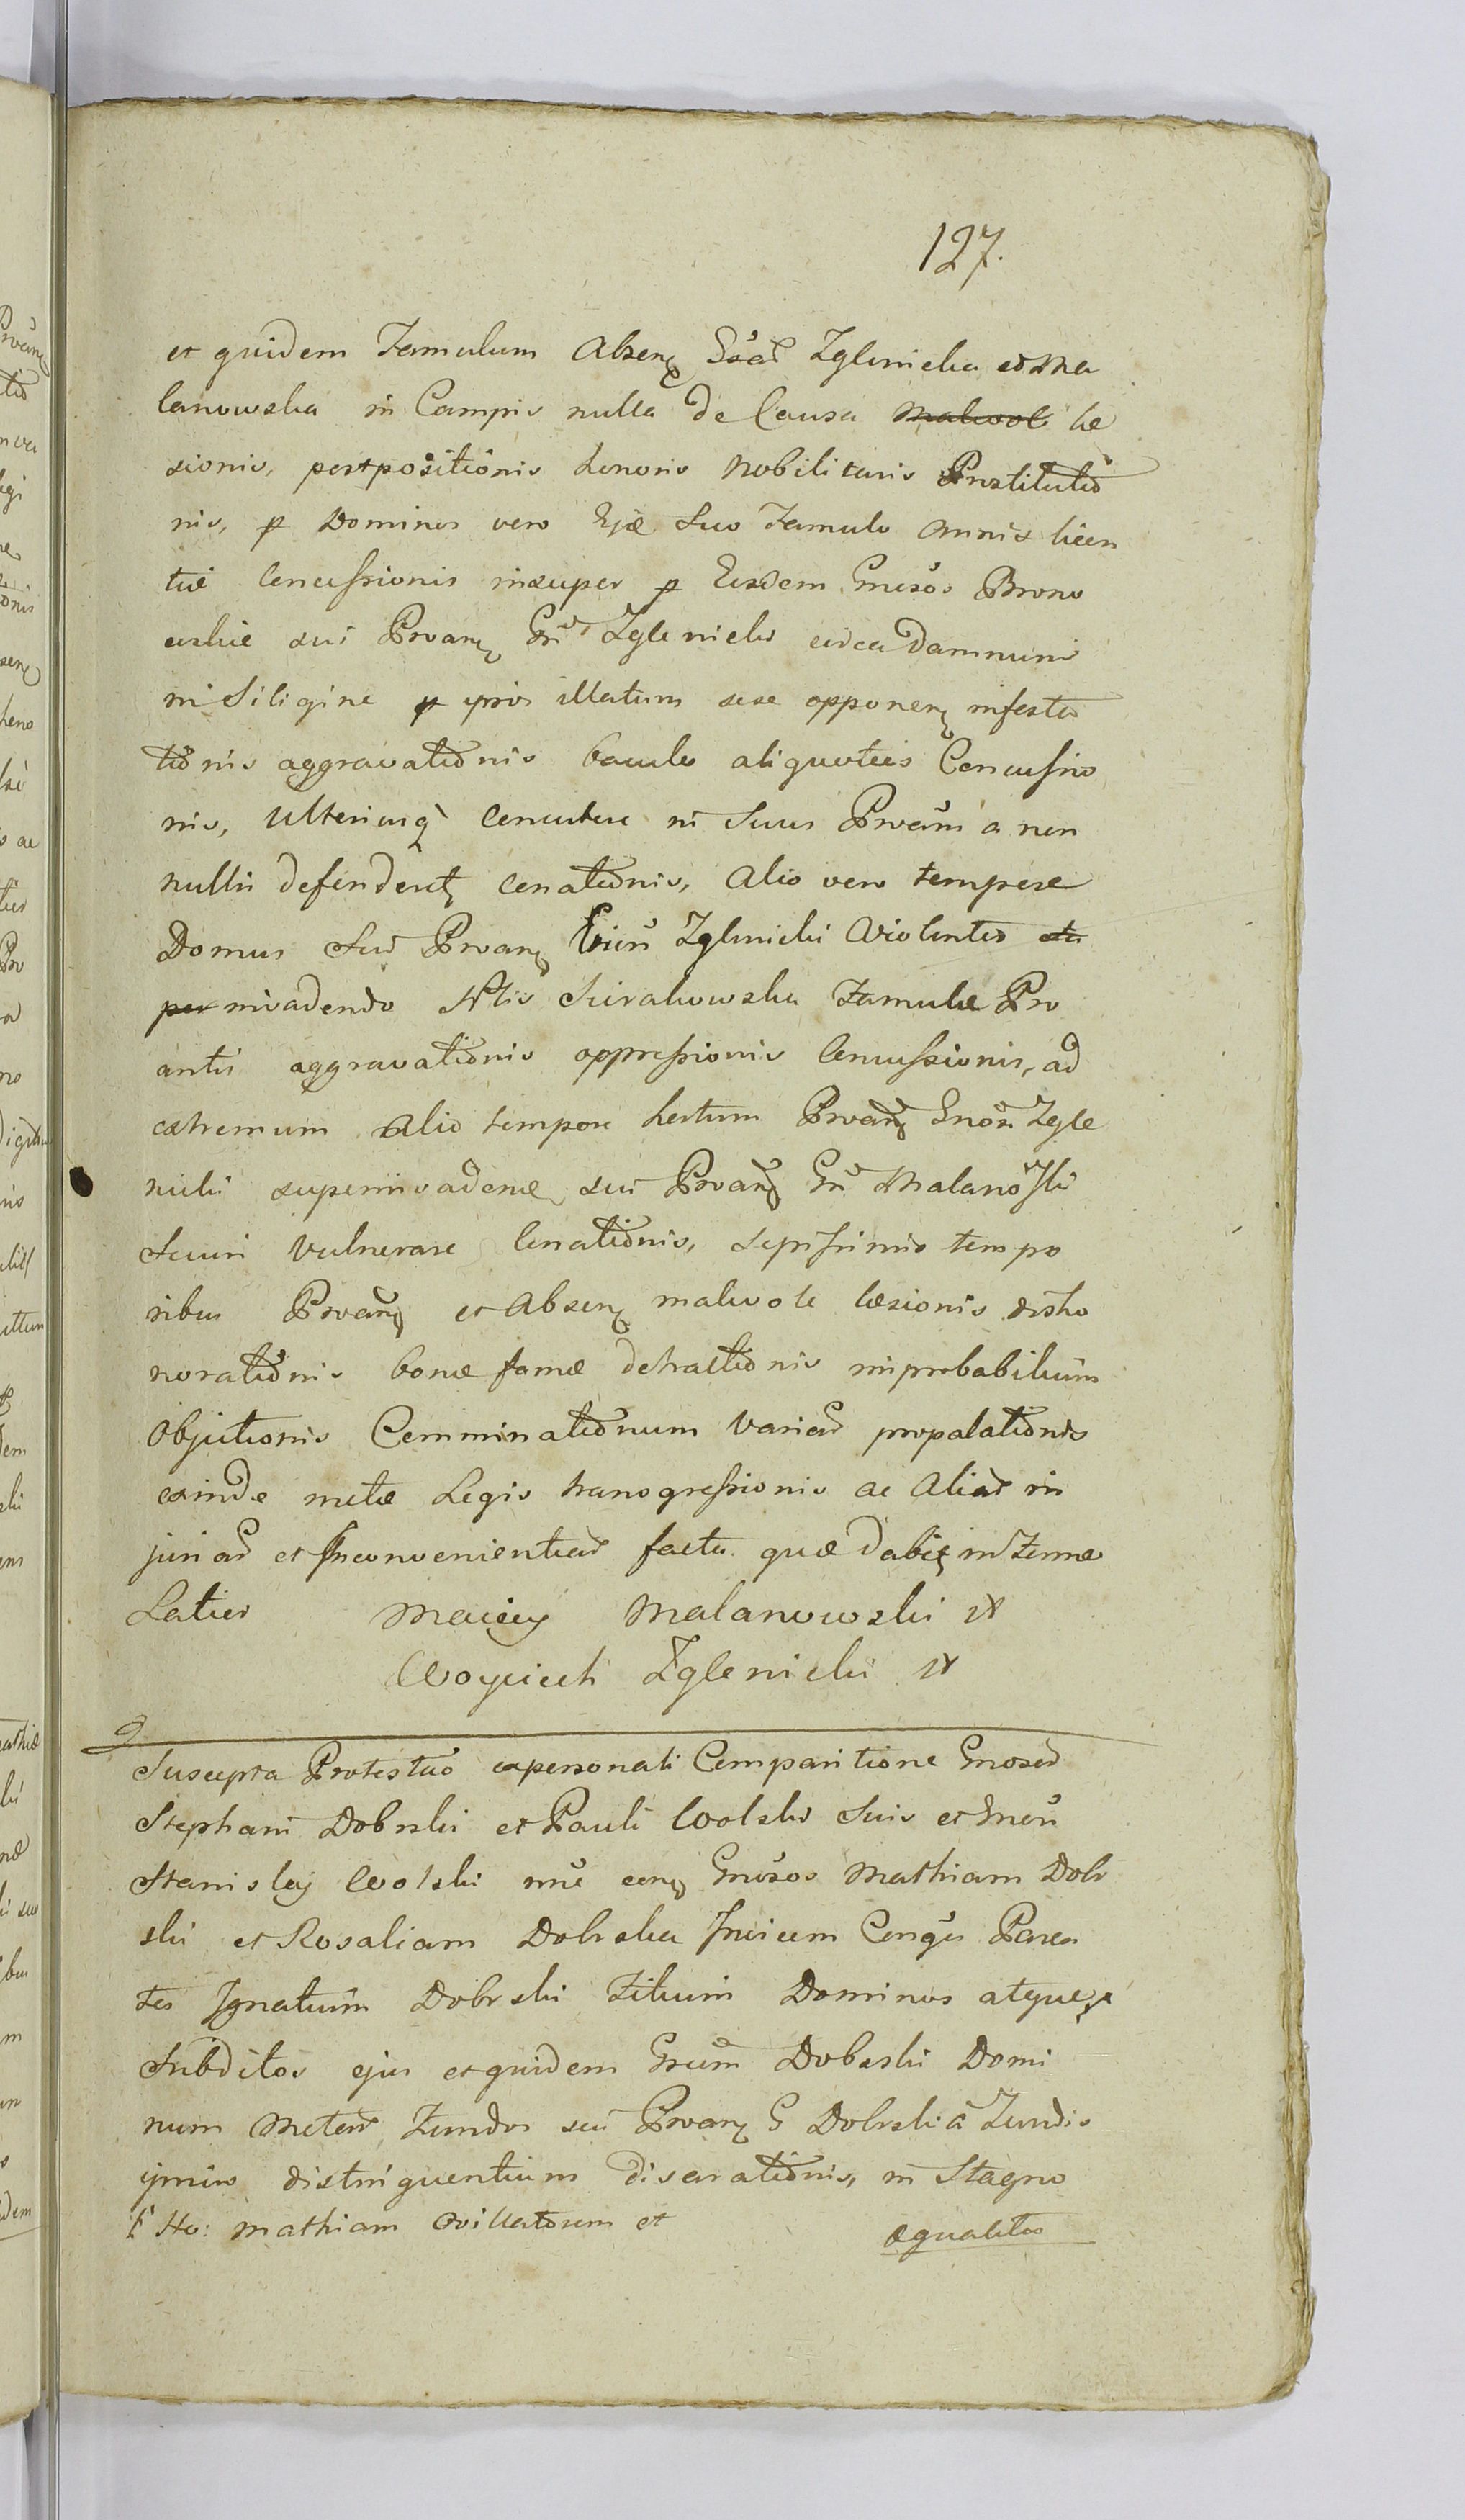 127.
et quidem Famulum Absenę Gsas Zglinicka et Ma
lanowska in Campis nulla de Causa malevol le
sionis, postpositionis honoris nobilitaris Prostitutio
nis, p Dominos vero Ejæ Suo Famulo omnis licen
tiæ Concussionis insuper p Eusdem Gnrosos Brono
sui Prvanę Gñi Zglenicki circa damnum
in Siligine p ipsos illatum sese opponenę infesta
tionis aggravationis baculo aliquoties Concussio
nis, Ulteriusq̀ concutere ni Suus Prvans a non
nullis defenderetę conationis, Alio vero tempore
Domus Sui Prvanę Gnsi Zglinicki Violento
per invadendo Nblis Sierakowska Famulæ Prv
antis aggravationis oppressionis Concussionis, ad
extremum Alio tempore hortum Prvanę Gnosi Zgle
nicki superinvadenę sui Prvanę Gñ Malanowski
Securi Vulnerare Conationis, sepissimis tempo
ribus Prvanę et Absenę malevole læsionis disho
norationis bonæ famæ detractionis improbabilium
Objectionis Comminationum variar propalationis
exinde metæ Legis transgressionis ac Aliar in
juriar et Inconvenientiar facta quæ dabię in Termo
Latius Maciey Malanowski
Woyciech Zglenicki
Suscepta Protestio expersonali Comparitione Gnosor
Stephani Dobrski et Pauli Wolski Suis et Gnsi
Stanislaj Wolski nñe conę Gnrosos Mathiam Dobr
ski et Rosaliam Dobrska Invicem Congês Paren
tes Ignatium Dobrski Filium Dominos atque
Subditos ejus et quidem Gnsum Dobrski Domi
num Metar Fundor sui Prvanę G Dobrski a Fundis
ipsius distinguentium disarationis, in Stagno
Ho: Mathiam Ovillatorem et æqualiter